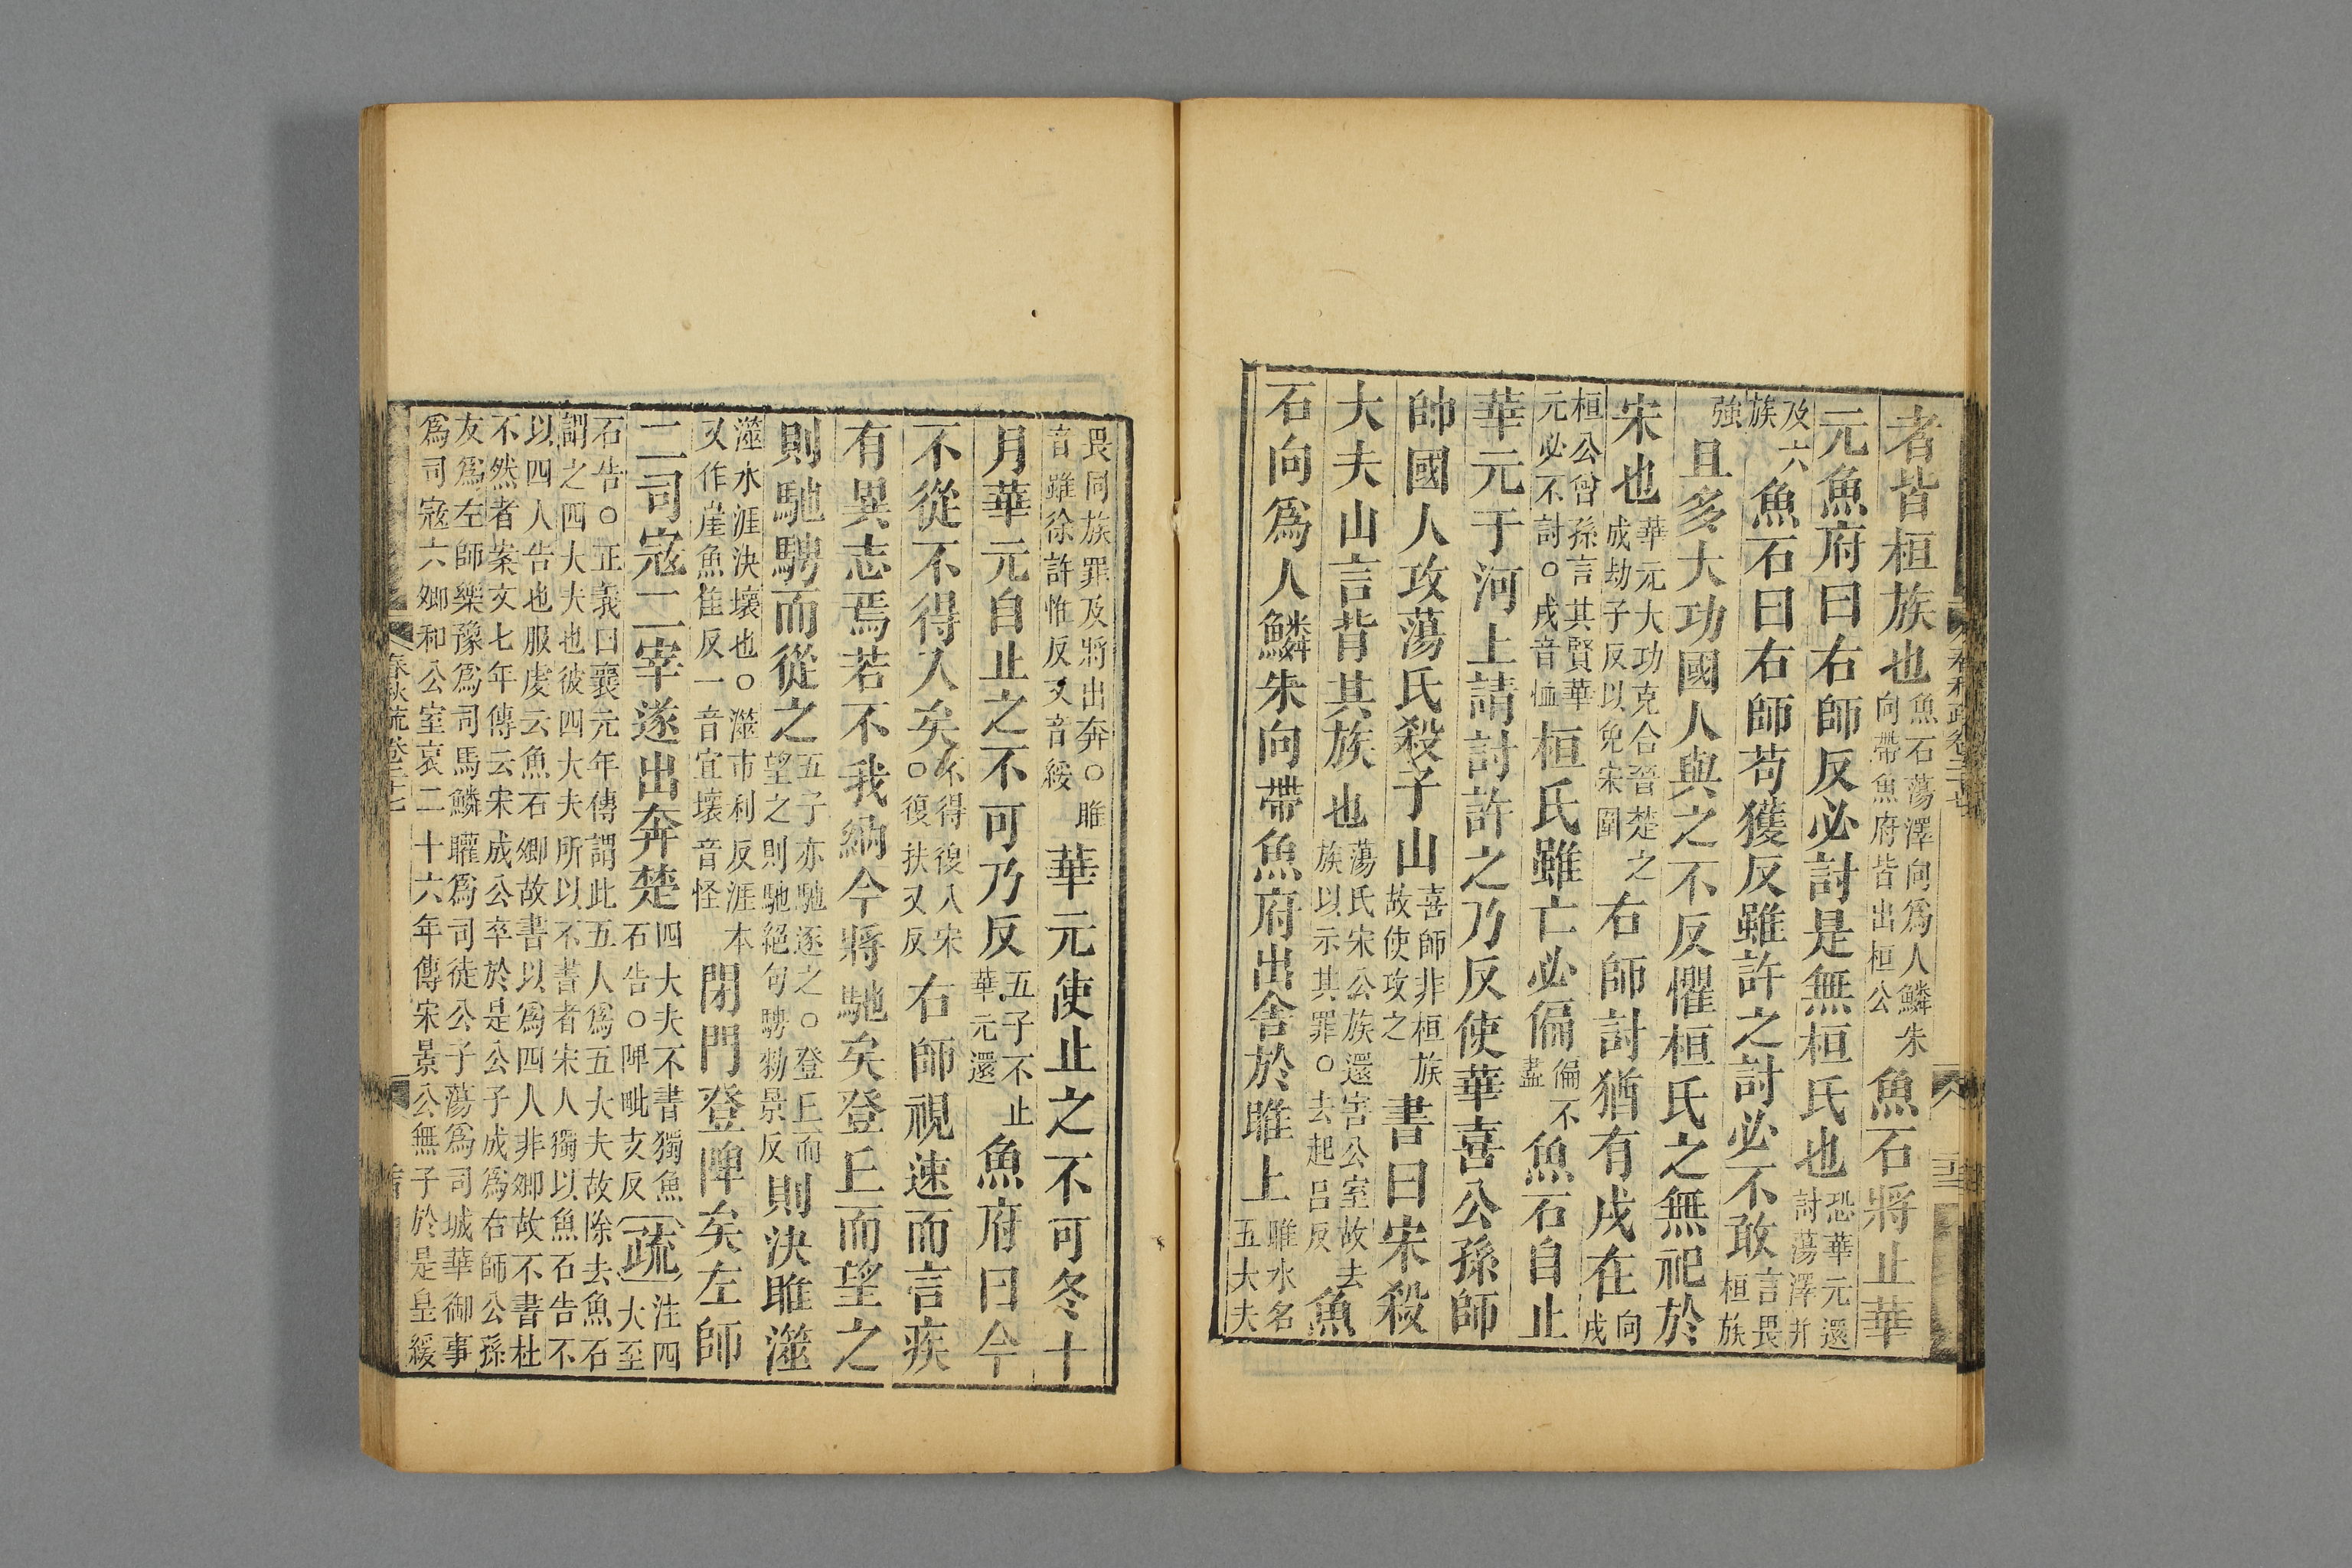 者皆桓族也魚石蕩澤向爲人鱗朱向帶魚府皆出桓公魚石將止華
元魚府曰右師反必討是無桓氏也恐華元還討蕩澤幷
及六族魚石曰右師苟獲反雖許之討必不敢言畏桓族
強且多大功國人與之不反懼桓氏之無祀於
宋也華元大功克合晉楚之成劫子反以免宋圍右師討猶有戌在向戌
桓公曾孫言其賢華元必不討○戌音恤桓氏雖亡必偏偏不盡魚石自止
華元于河上請討許之乃反使華喜公孫師
帥國人攻蕩氏殺子山喜師非桓族故使攻之書曰宋殺
大夫山言背其族也蕩氏宋公族還害公室故去族以示其罪○去起呂反魚
石向爲人鱗朱向帶魚府出舍於睢上睢水名五大夫
畏同族罪及將出奔○睢音雖徐許惟反又音綏華元使止之不可冬十
月華元自止之不可乃反五子不止華元還魚府曰今
不從不得入矣不得復入宋○復扶又反右師視速而言疾
有異志焉若不我納今將馳矣登丘而望之
則馳騁而從之五子亦馳逐之○登丘而望之則馳絕句騁勑景反則決睢澨
澨水涯決壞也○澨市利反涯本又作崖魚隹反一音宜壞音怪閉門登陴矣左師
二司寇二宰遂出奔楚四大夫不書獨魚石告○陴毗支反疏注四大至
石告○正義曰襄元年傳謂此五人爲五大夫故除去魚石
謂之四大夫也彼四大夫所以不書者宋人獨以魚石告不
以四人告也服虔云魚石卿故書以爲四人非卿故不書杜
不然者案文七年傳云宋成公卒於是公子成爲右師公孫
友爲左師樂豫爲司馬鱗矔爲司徒公子蕩爲司城華御事
爲司寇六卿和公室哀二十六年傳宋景公無子於是皇緩
春秋疏卷二十七